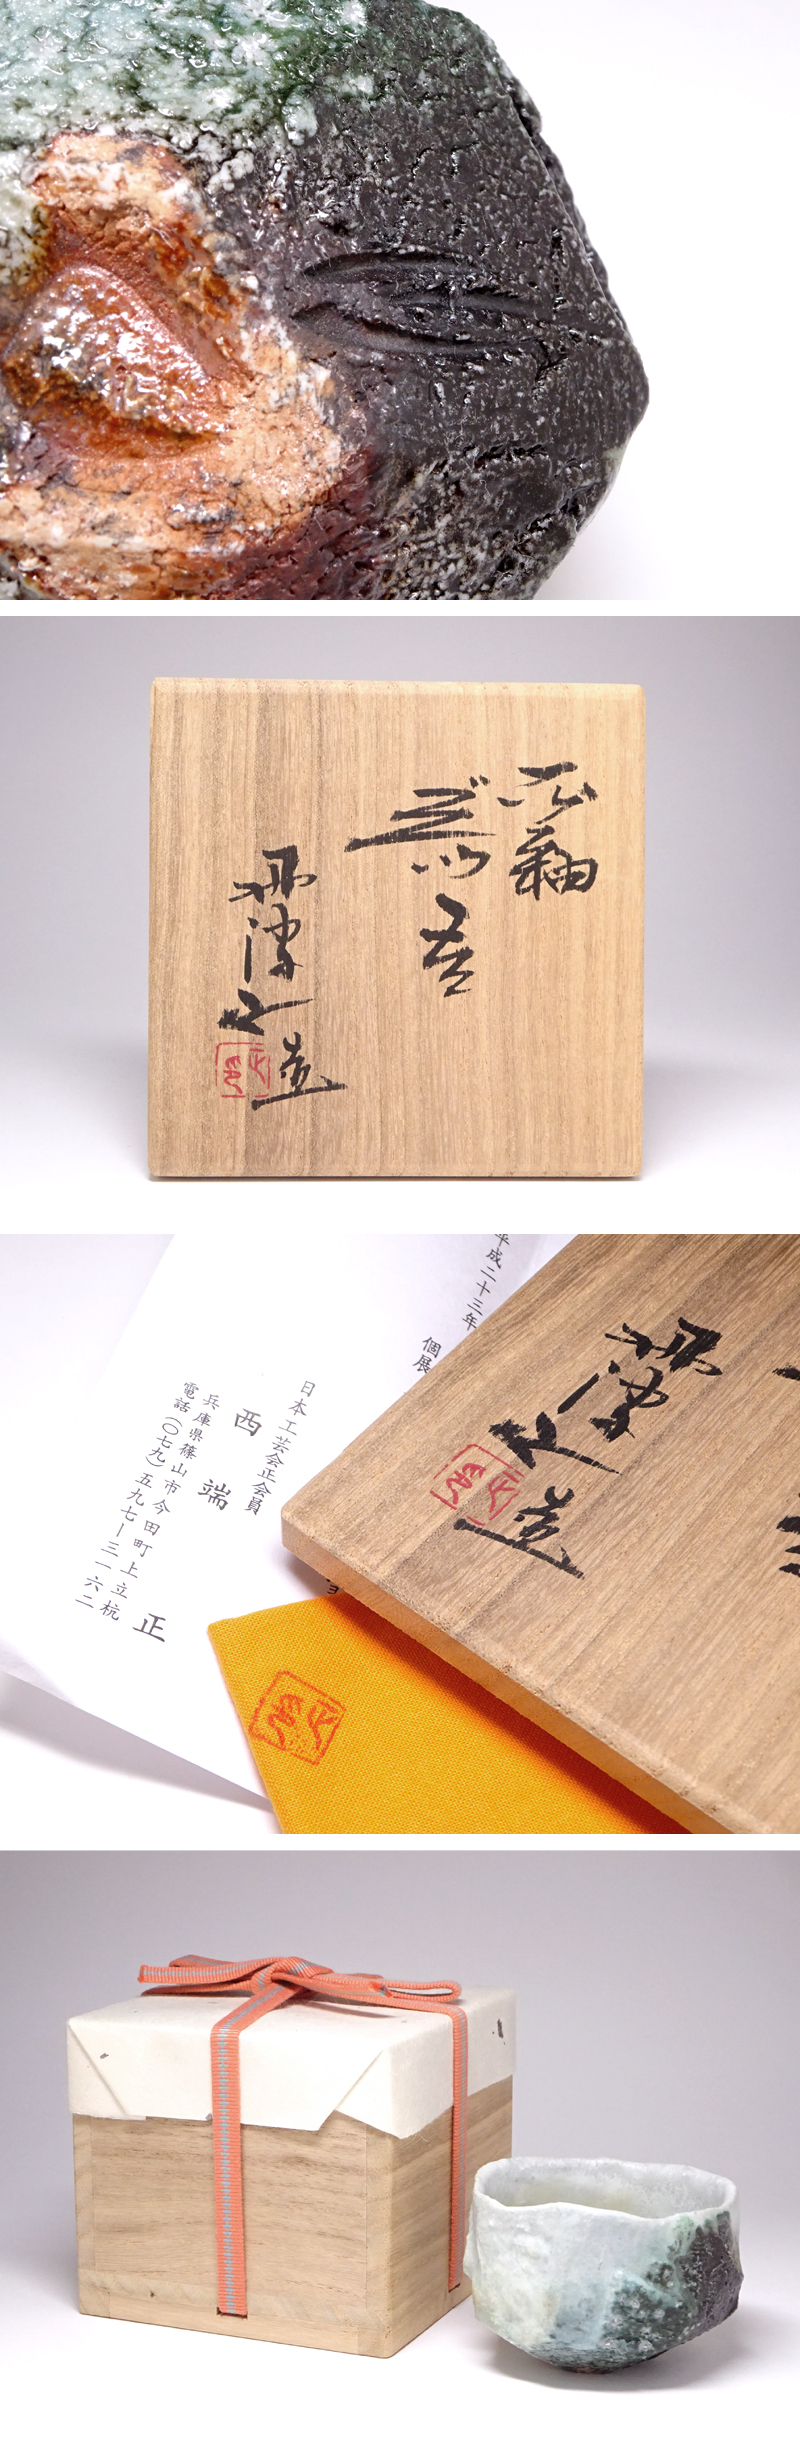 釉
丹波正造
平成二十三年
個展
日本工芸会正会員
西端 正
兵庫県篠山市今田町上立杭
電話(〇七九)五九七ー三一六二
丹波正造